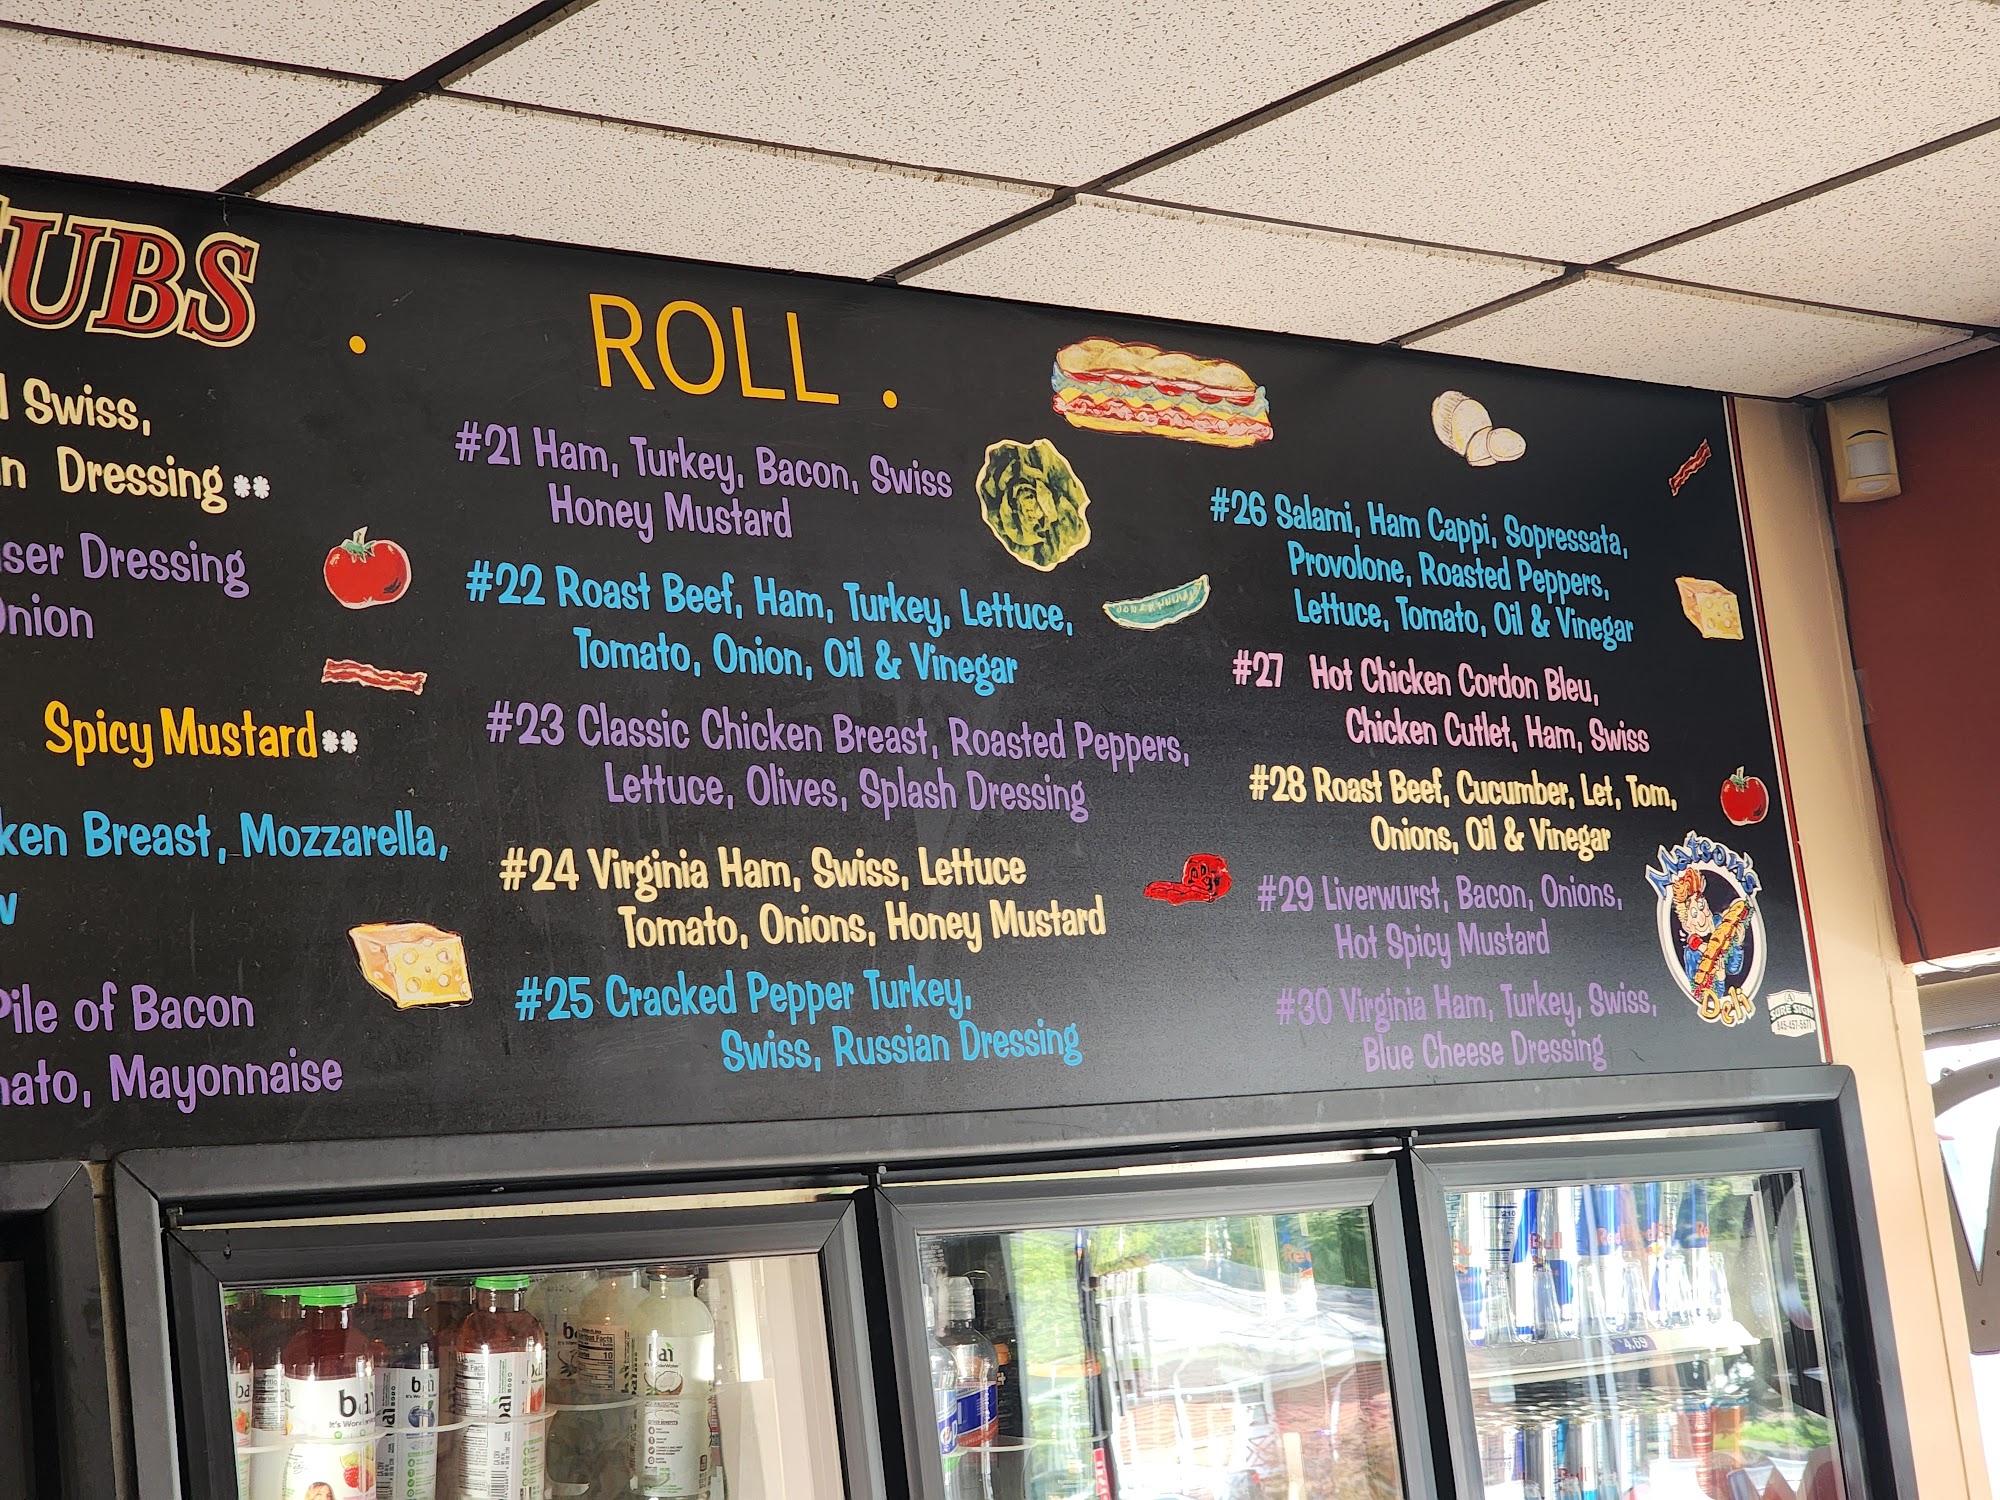 UBS
. ROLL .
Swiss,
Dressing**
ser Dressing
Onion
Spicy Mustard**
ken Breast, Mozzarella,
Pile of Bacon
ato, Mayonnaise
#21 Ham, Turkey, Bacon, Swiss
Honey Mustard
#22 Roast Beef, Ham, Turkey, Lettuce,
Tomato, Onion, Oil & Vinegar
#23 Classic Chicken Breast, Roasted Peppers,
Lettuce, Olives, Splash Dressing
#24 Virginia Ham, Swiss, Lettuce
Tomato, Onions, Honey Mustard
#25 Cracked Pepper Turkey,
Swiss, Russian Dressing
#26 Salami, Ham Cappi, Sopressata,
Provolone, Roasted Peppers,
Lettuce, Tomato, Oil & Vinegar
#27 Hot Chicken Cordon Bleu,
Chicken Cutlet, Ham, Swiss
#28 Roast Beef, Cucumber, Let, Tom,
Onions, Oil & Vinegar
#29 Liverwurst, Bacon, Onions,
Hot Spicy Mustard
#30 Virginia Ham, Turkey, Swiss,
Blue Cheese Dressing
Matson's
Deli
SURE SIGN
845-457-5571
bai
bai
bai
bai
4.69